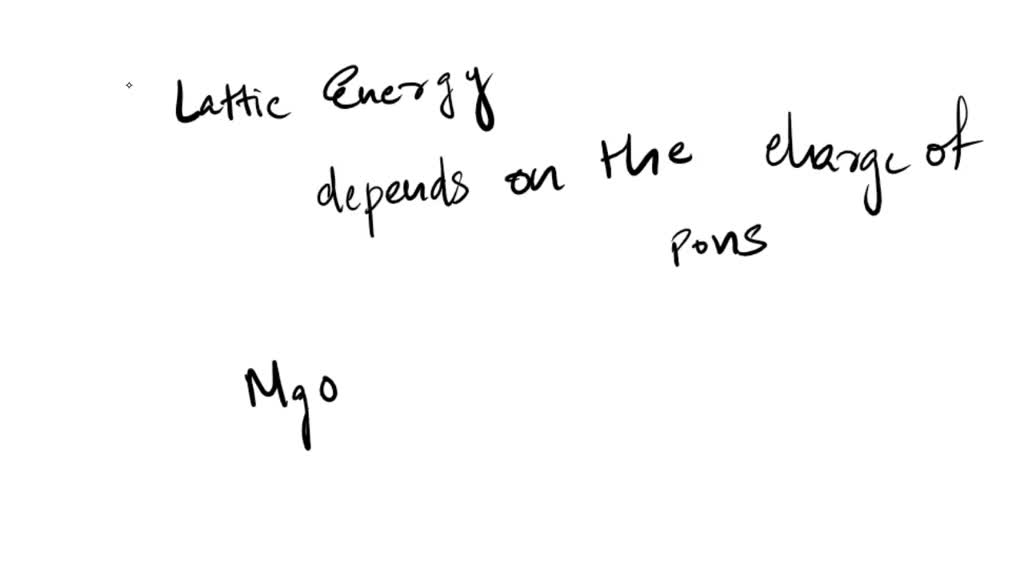 Lattic Energy
depends on the charge of
pons
Mgo